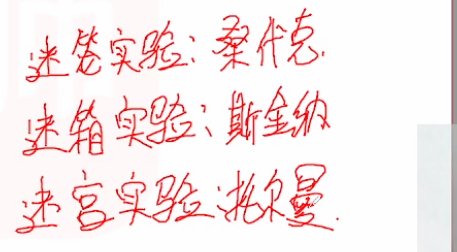 迷笼实验：桑代克.
迷箱实验：斯金纳
迷宫实验：托尔曼.